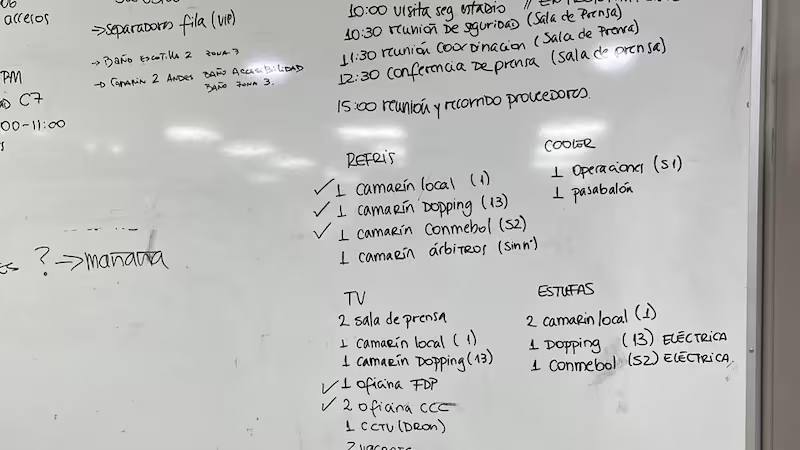 accesos
→separadores fila (VIP)
→ Baño Escotilla 2 zona 3
→ Camarín 2 Andes Baño Accesibilidad
Baño zona 3.
PM
C7
00-11:00
? → mañana
10:00 visita seg estadio
10:30 reunión de seguridad (Sala de Prensa)
11:30 reunión coordinacion (Sala de Prensa)
12:30 conferencia de prensa (sala de prensa)
15:00 reunión y recorrido proveedores.
REFRIS
✓ 1 camarín local (1)
✓ 1 camarín Dopping (13)
✓ 1 camarín Conmebol (S2)
1 camarín árbitros (Sin nº)
COOLER
1 Operaciones (S1)
1 pasabalón
TV
2 sala de prensa
1 camarín local (1)
1 camarín Dopping (13)
✓ 1 oficina FDP
✓ 2 oficina CCC
1 CCTV (Dron)
ESTUFAS
2 camarin local (1)
1 Dopping (13) ELÉCTRICA
1 Conmebol (S2) ELÉCTRICA.